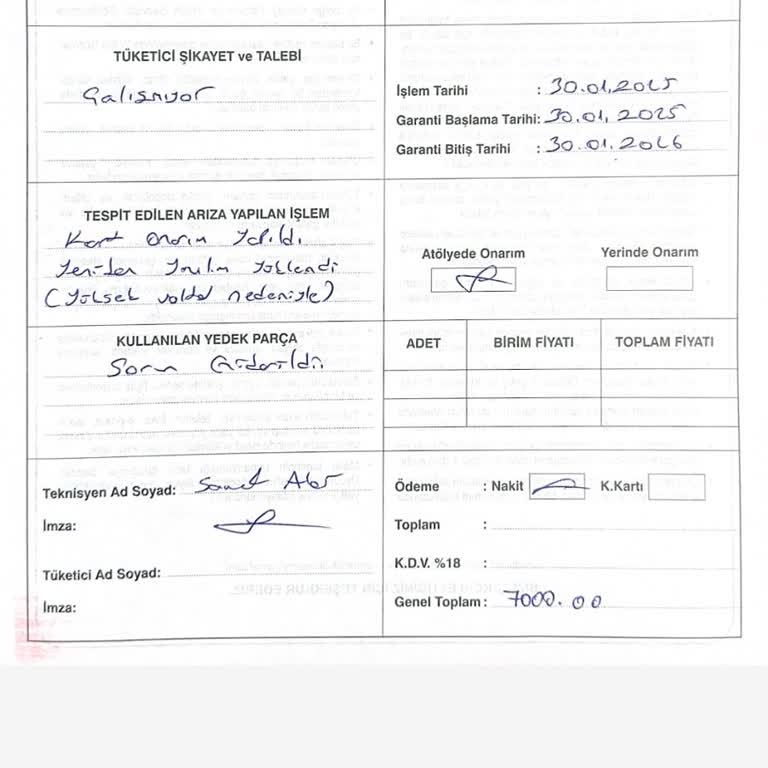 TÜKETİCİ ŞİKAYET ve TALEBİ
Çalışmıyor
İşlem Tarihi : 30.01.2025
Garanti Başlama Tarihi: 30.01.2025
Garanti Bitiş Tarihi : 30.01.2026
TESPİT EDİLEN ARIZA YAPILAN İŞLEM
Kart Onarım Yapıldı
Yeniden Yazılım Yüklendi
(Yüksek voltaj nedeniyle)
Atölyede Onarım
Yerinde Onarım
KULLANILAN YEDEK PARÇA
Sorun Giderildi.
ADET BİRİM FİYATI TOPLAM FİYATI
Teknisyen Ad Soyad:
İmza:
Tüketici Ad Soyad:
İmza:
Ödeme : Nakit K.Kartı
Toplam :
K.D.V. %18 :
Genel Toplam : 7000.00